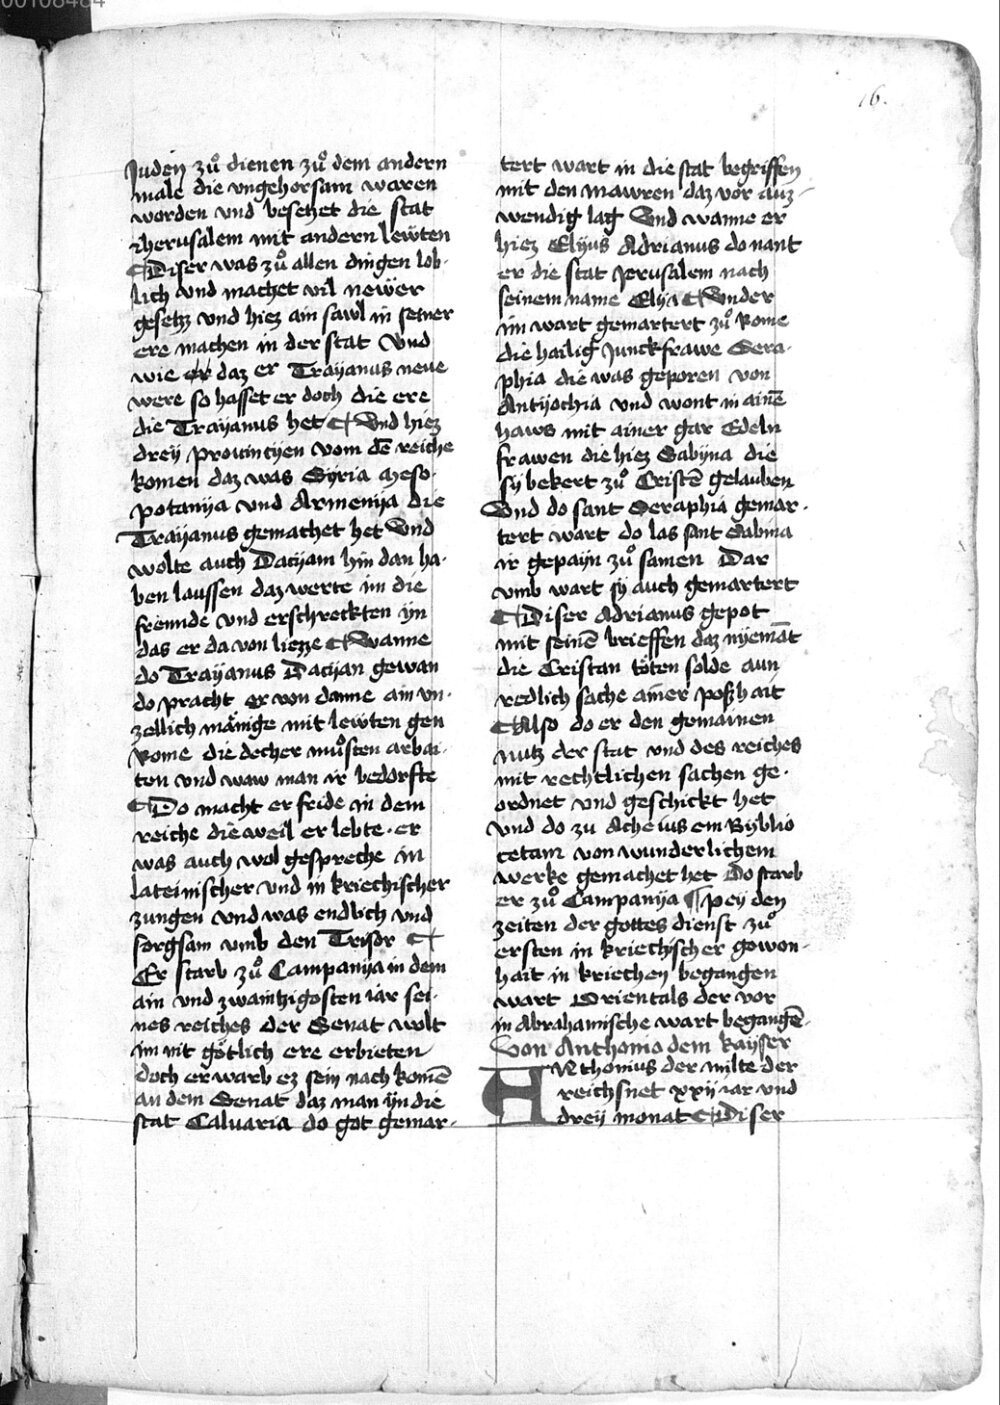 00108484
16.
Juden zuͦ dienen zuͦ dem andern
male die vngehorsam waren
worden vnd besetzet die stat
Jherusalem mit andern lewten
¶ Diser was zuͦ allen dingen lob-
lich vnd machet vil newer
gesetz vnd hiez ain sawl in seiner
ere machen in der stat Vnd
wie er daz er Trayanus neue
were so hasset er doch die ere
die Trayanus het ¶ Vnd hiez
dreÿ prouincÿen vom dē reiche
komen daz was Syria Meso-
potanÿa vnd Armenÿa die
Traÿanus gemachet het Vnd
wolte auch Dacÿam hin dan ha-
ben laussen daz werte im die
freunde vnd erschreckten ÿn
das er da von liezze ¶ Wanne
do Traÿanus Dacÿan gewan
do pracht er von danne ain vn-
zellich mänige mit lewten gen
Rome die decher muͦsten arbai-
ten vnd waw man ir bedorfte
¶ Do macht er fride in dem
reiche die weil er lebte. er
was auch wol gespreche in
lateinischer vnd in kriechischer
zungen vnd was endlich vnd
sorgsam vmb den Trisor ¶
Er starb zuͦ Campanÿa in dem
ain vnd zwaintzigosten iar sei-
nes reiches der Senat wolt
im nit götlich ere erbieten
doch erwarb ez sein nach komē
an dem Senat daz man ÿn die
stat Caluaria do got gemar-
tert wart in die stat begriffen
mit den mawren daz vor auz-
wendig lag Vnd wanne er
hiez Elÿus Adrianus do nant
er die stat Jerusalem nach
seinem name Elÿa ¶ Vnder
im wart gemartert zuͦ Rome
die hailig Junckfrawe Sera-
phia die was geporen von
Antÿochia vnd wont in ainē
haws mit ainer gar Edeln
frawen die hiez Sabÿna die
sÿ bekert zuͦ Cristē gelauben
Vnd do sant Seraphia gemar-
tert wart do las sant Sabina
ir gepaÿn zuͦ samen Dar
vmb wart sÿ auch gemartert
¶ Diser Adrianus gepot
mit seinē brieffen daz nÿemāt
die Cristan töten solde aun
redlich sache ainer poßhait
¶ Also do er den gemainen
nutz der stat vnd des reiches
mit rechtlichen sachen ge-
ordnet vnd geschickt het
vnd do zu Athenis ein Bÿblio
tetam von wunderlichem
werke gemachet het Do starb
er zuͦ Campanÿa ¶ peÿ den
zeiten der gottes dienst zuͦ
ersten in kriechischer gewon-
hait in kriechen begangen
wart Orientals der vor
in Abrahamische wart begangē.
Von Anthonio dem kaÿser
ANthonius der milte der
reichsnet xxij iar vnd
dreÿ monat ¶ Diser